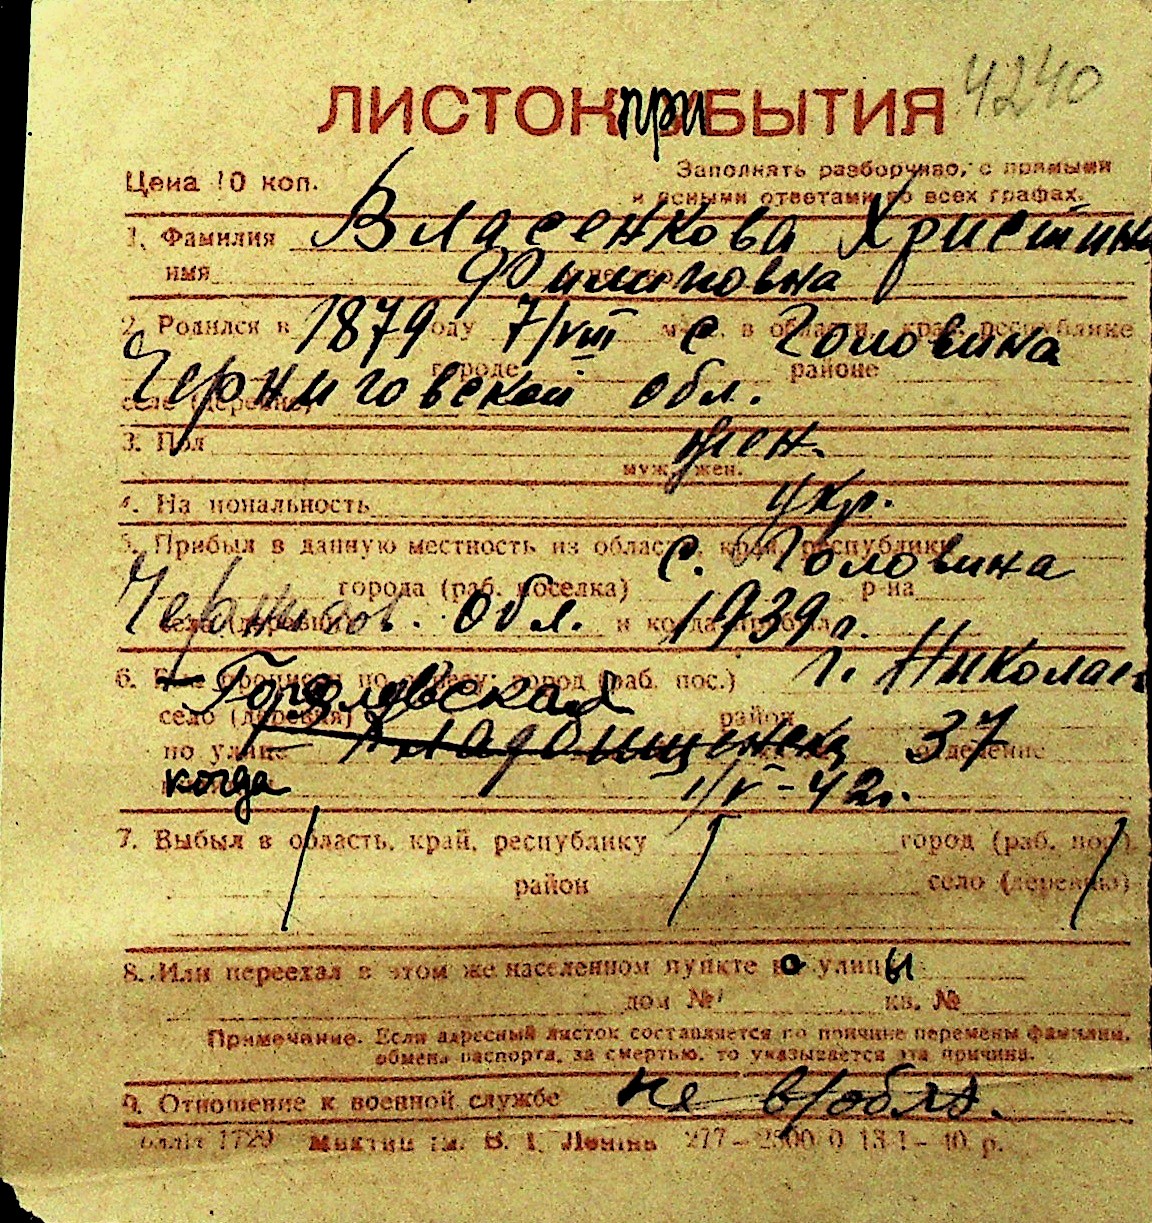 4240
ЛИСТОК при БЫТИЯ
Цена 10 коп.
Заполнять разборчиво, с прямыми
и ясными ответами во всех графах.
1. Фамилия Власенкова Христина
имя Филиповна
2. Родился в 1879 году 7/VIII м-ца, в области, крае, республике с Головина
городе районе
Черниговской обл.
село (деревне)
3. Пол жен.
муж., жен.
4. Национальность укр.
5. Прибыл в данную местность из области, края, республики с. Головина
города (раб. поселка) р-на
Чернигов. обл. и когда прибыл 1939 г.
6. город (раб. пос.) г. Николаев
село (деревня) район
по улице 37 отделение
когда 1/V-42г.
7. Выбыл в область, край, республику город (раб. пос.)
район село (деревню)
8. Или переехал в этом же населенном пункте со улицы
дом № кв. №
Примечание. Если адресный листок составляется по причине перемены фамилии,
обмена паспорта, за смертью, то указывается эта причина.
9. Отношение к военной службе не в/обяз.
1729 ім. В. І. Леніна 277—2500 0 13 I—40 р.